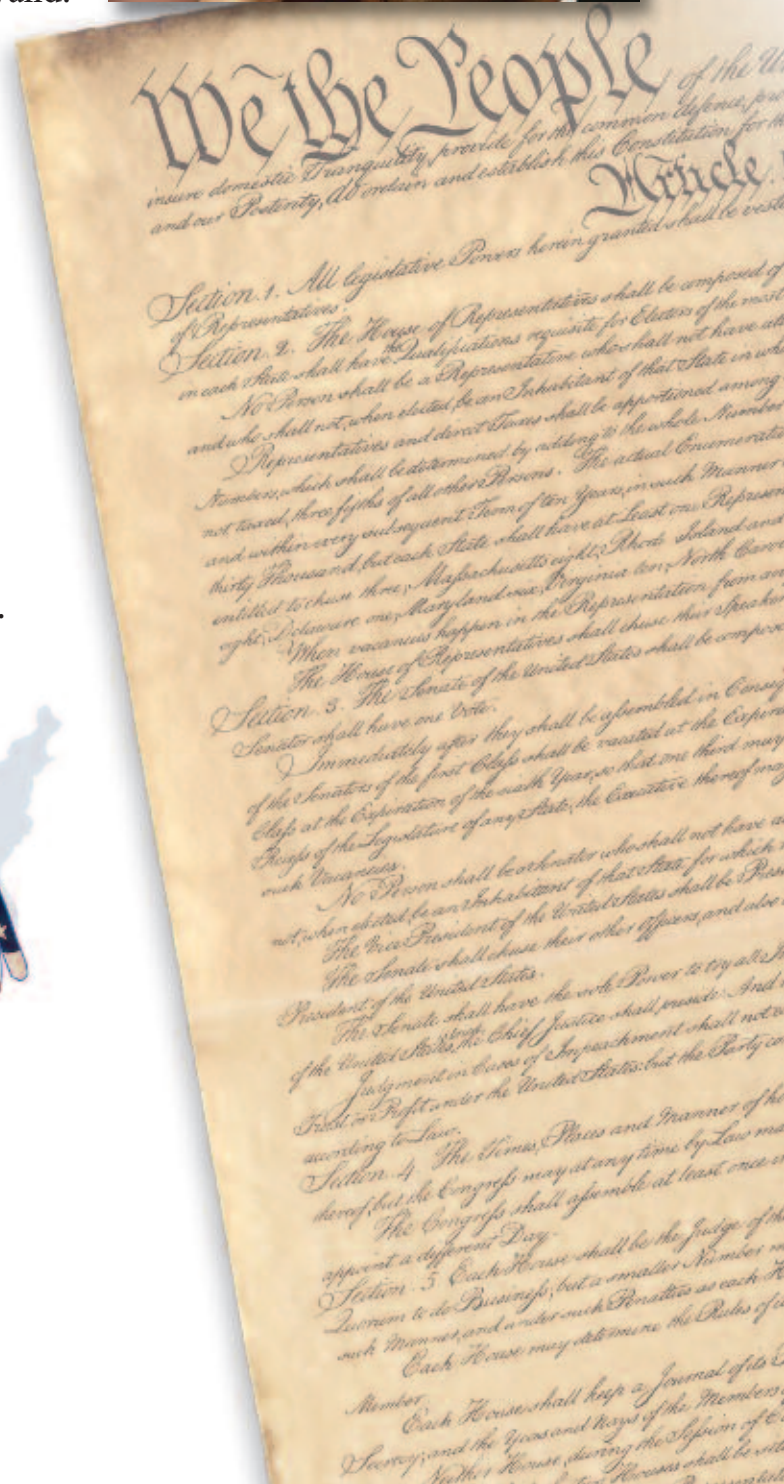 We the People of the Un
insure domestic Tranquility, provide for the common defence, pro
and our Posterity, do ordain and establish this Constitution for the
Article.
Section. 1. All legislative Powers herein granted shall be vested
of Representatives.
Section. 2. The House of Representatives shall be composed of
in each State shall have the Qualifications requisite for Electors of the most
No Person shall be a Representative who shall not have atta
and who shall not, when elected, be an Inhabitant of that State in whi
Representatives and direct Taxes shall be apportioned among
Numbers, which shall be determined by adding to the whole Number
not taxed, three fifths of all other Persons. The actual Enumeratio
and within every subsequent Term of ten Years, in such Manner
thirty Thousand, but each State shall have at Least one Represen
entitled to chuse three, Massachusetts eight, Rhode Island and
eight, Delaware one, Maryland six, Virginia ten, North Caro
When vacancies happen in the Representation from an
The House of Representatives shall chuse their Speaker
Section. 3. The Senate of the United States shall be compose
Senator shall have one Vote.
Immediately after they shall be assembled in Conseq
of the Senators of the first Class shall be vacated at the Expira
Class at the Expiration of the sixth Year, so that one third may
Recess of the Legislature of any State, the Executive thereof ma
such Vacancies.
No Person shall be a Senator who shall not have a
not, when elected, be an Inhabitant of that State for which
The Vice President of the United States shall be Presi
The Senate shall chuse their other Officers, and also
President of the United States.
The Senate shall have the sole Power to try all I
of the United States, the Chief Justice shall preside: And
Judgment in Cases of Impeachment shall not
Trust or Profit under the United States: but the Party co
according to Law.
Section. 4. The Times, Places and Manner of ho
thereof, but the Congress may at any time by Law ma
The Congress shall assemble at least once i
appoint a different Day.
Section. 5 Each House shall be the Judge of th
Quorum to do Business, but a smaller Number m
such Manner, and under such Penalties as each H
Each House may determine the Rules of i
Member.
Each House shall keep a Journal of its
Secrecy; and the Yeas and Nays of the Members
Neither House, during the Session of C
Houses shall be